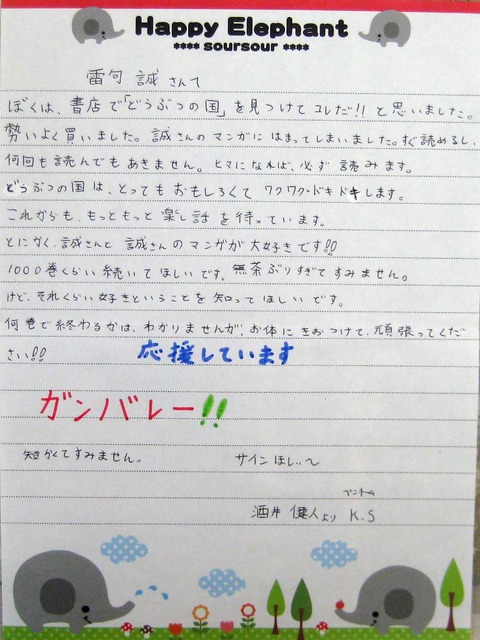 Happy Elephant
**** soursour ****
雷句 誠さんへ
ぼくは、書店で「どうぶつの国」を見つけてコレだ!!と思いました。
勢いよく買いました。誠さんのマンガにはまってしまいました。すぐ読めるし、
何回も読んでもあきません。ヒマになれば、必ず読みます。
どうぶつの国は、とってもおもしろくてワクワク・ドキドキします。
これからも、もっともっと楽し話を待っています。
とにかく、誠さんと誠さんのマンガが大好きです!!
1000巻くらい続いてほしいです。無茶ぶりすぎてすみません。
けど、それくらい好きということを知ってほしいです。
何巻で終わるかは、わかりませんが、お体にきおつけて、頑張ってくだ
さい!! 応援しています
ガンバレー!!
短かくてすみません。 サインほし〜
ペンネーム
酒井 健人より K.S